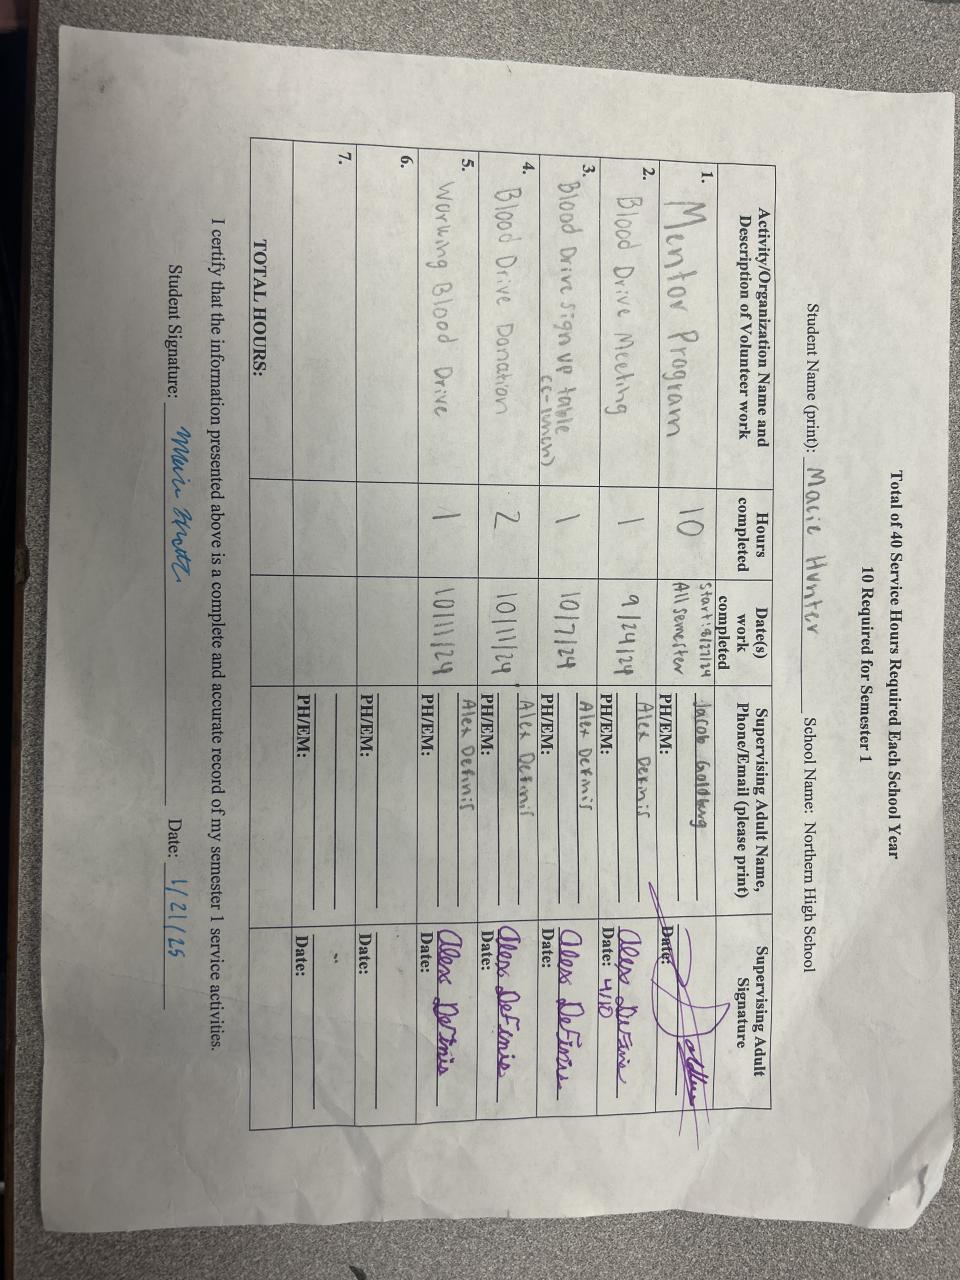 Total of 40 Service Hours Required Each School Year
10 Required for Semester 1
Student Name (print): Macie Hunter School Name: Northern High School
Activity/Organization Name and Description of Volunteer work
Hours completed
Date(s) work completed
Supervising Adult Name, Phone/Email (please print)
Supervising Adult Signature
1. Mentor Program
10
Start: 8/27/24
All semester
Jacob Goldberg
PH/EM:
Date:
2. Blood Drive Meeting
1
9/24/24
Alex
PH/EM:
Alex
Date: 4/10
3. Blood Drive sign up table
1
10/7/24
Alex
PH/EM:
Alex
Date:
4. Blood Drive Donation
2
10/11/24
Alex
PH/EM:
Alex
Date:
5. Working Blood Drive
1
10/11/24
Alex
PH/EM:
Alex
Date:
6.
PH/EM:
Date:
7.
PH/EM:
Date:
TOTAL HOURS:
I certify that the information presented above is a complete and accurate record of my semester 1 service activities.
Student Signature:
Date: 1/21/25